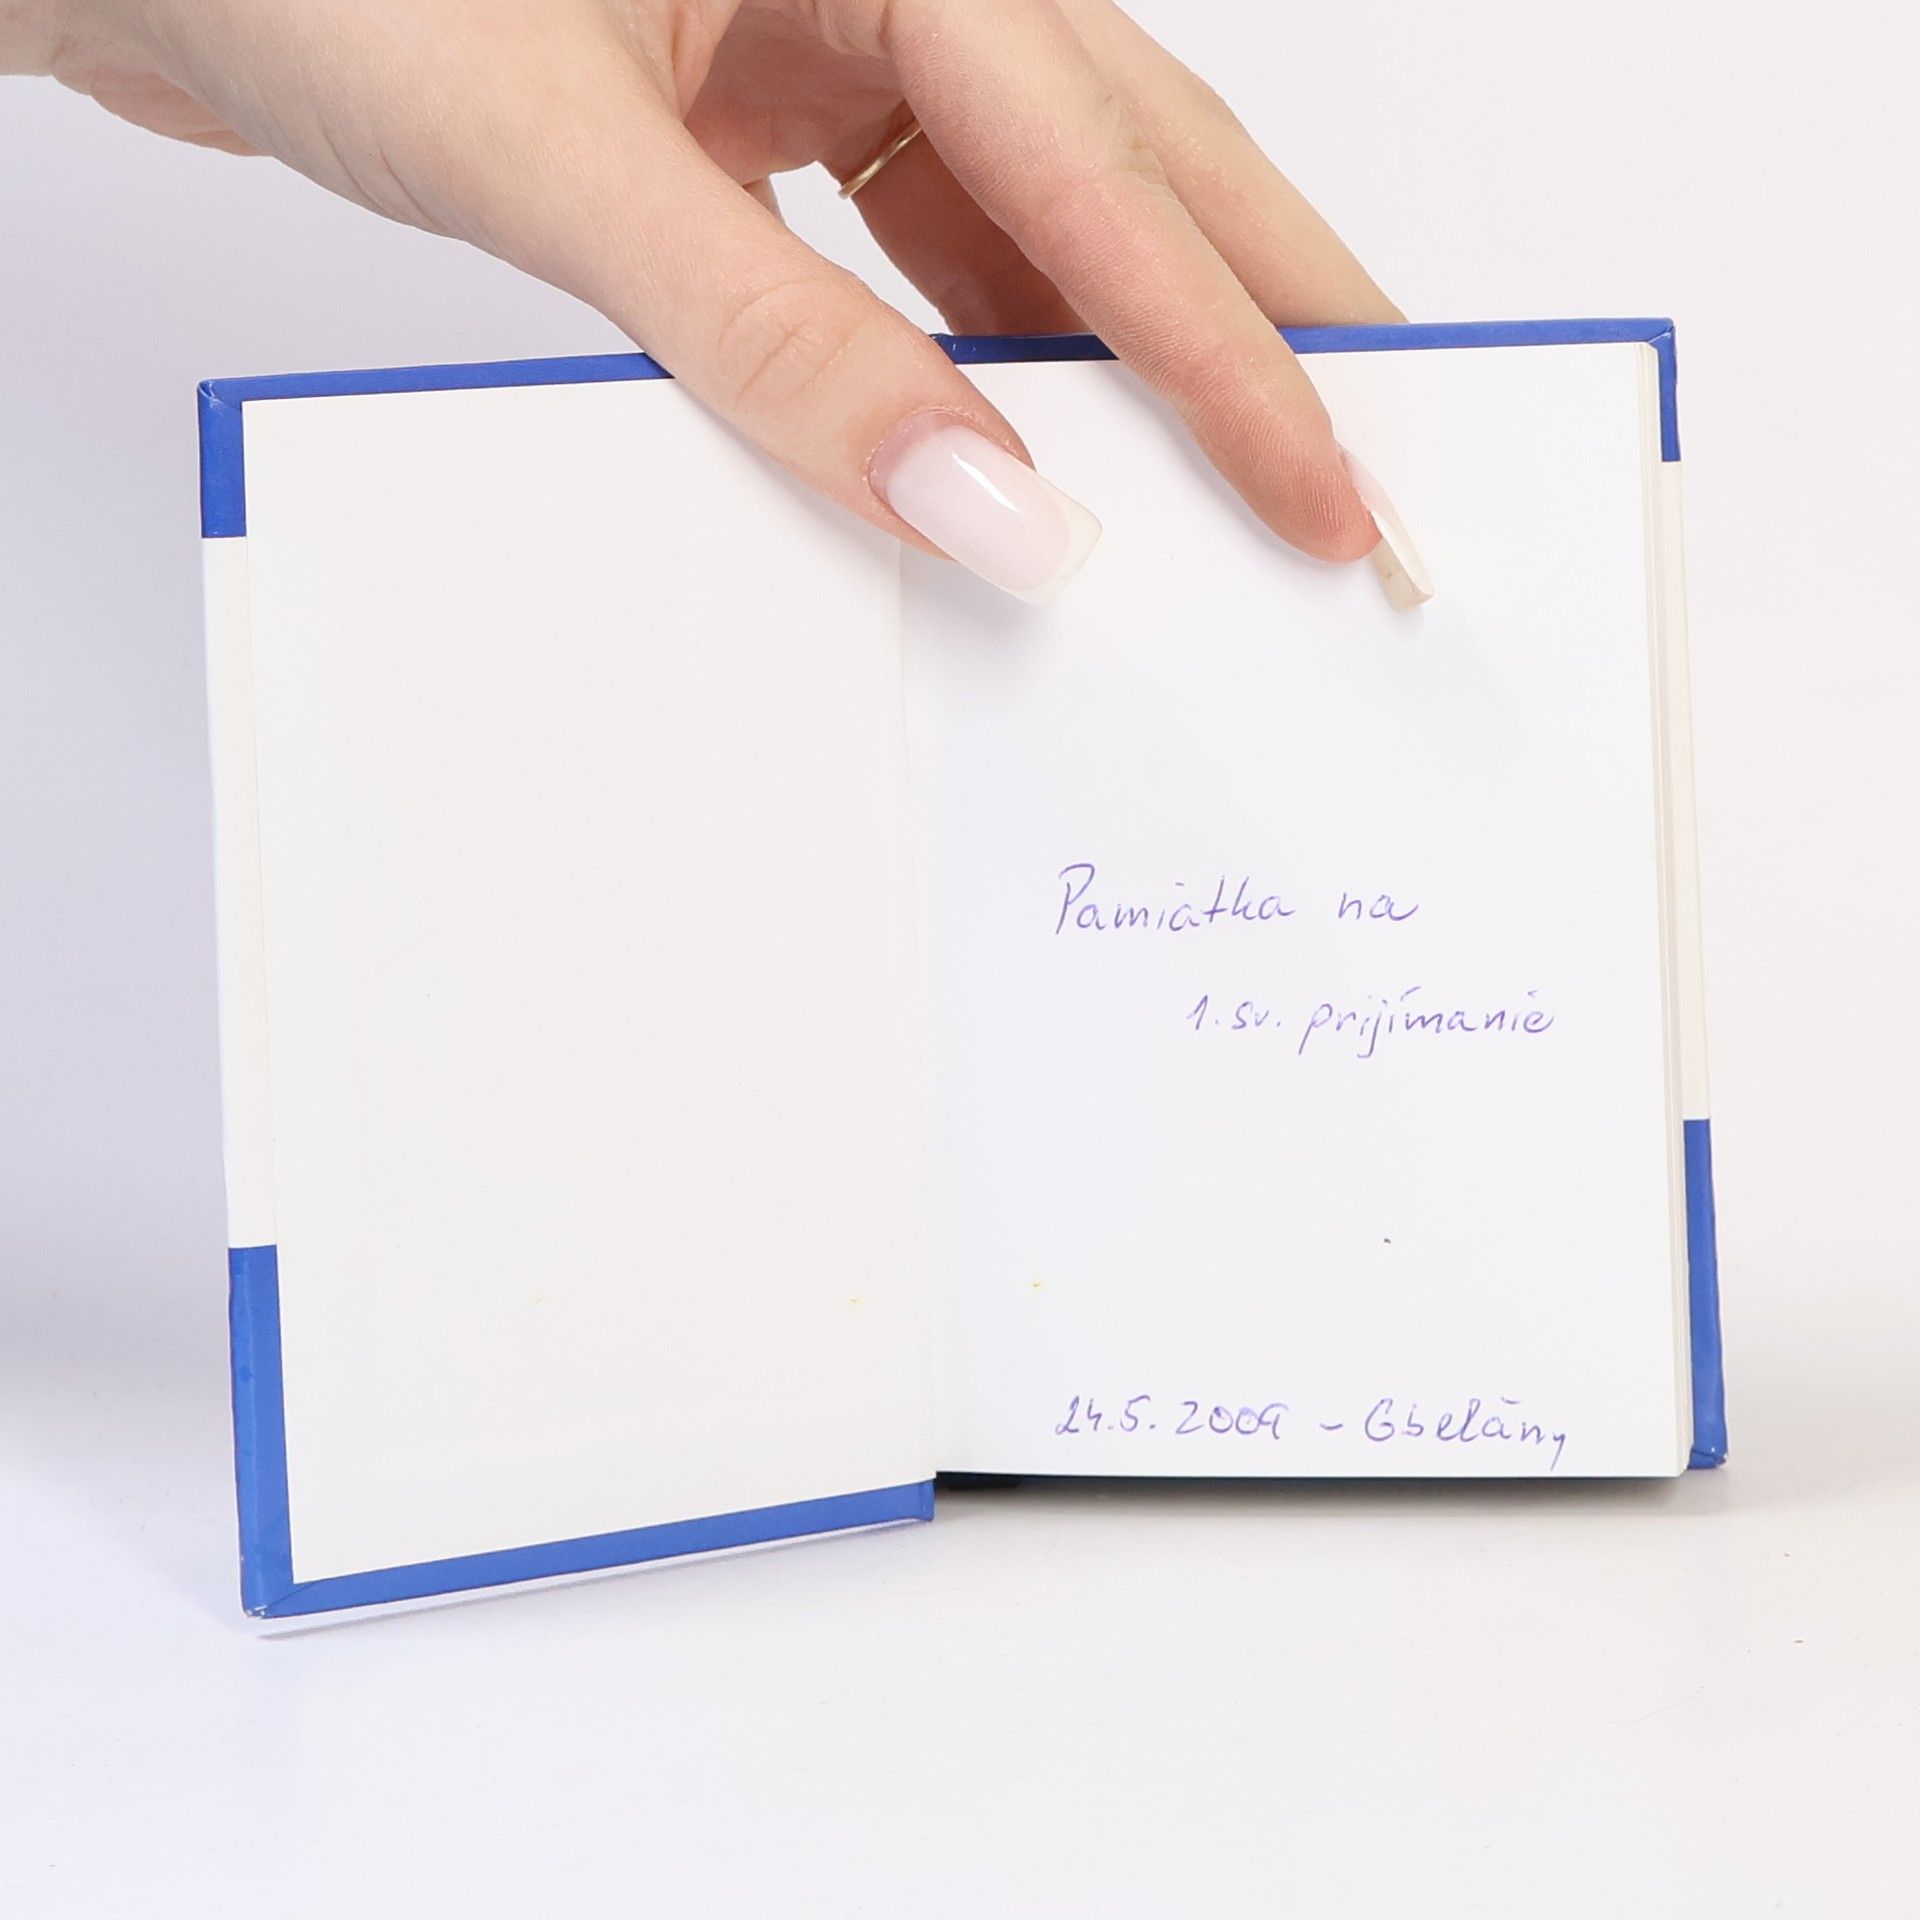 Pamiatka na
1. sv. prijímanie
24.5. 2009 - Gbelány